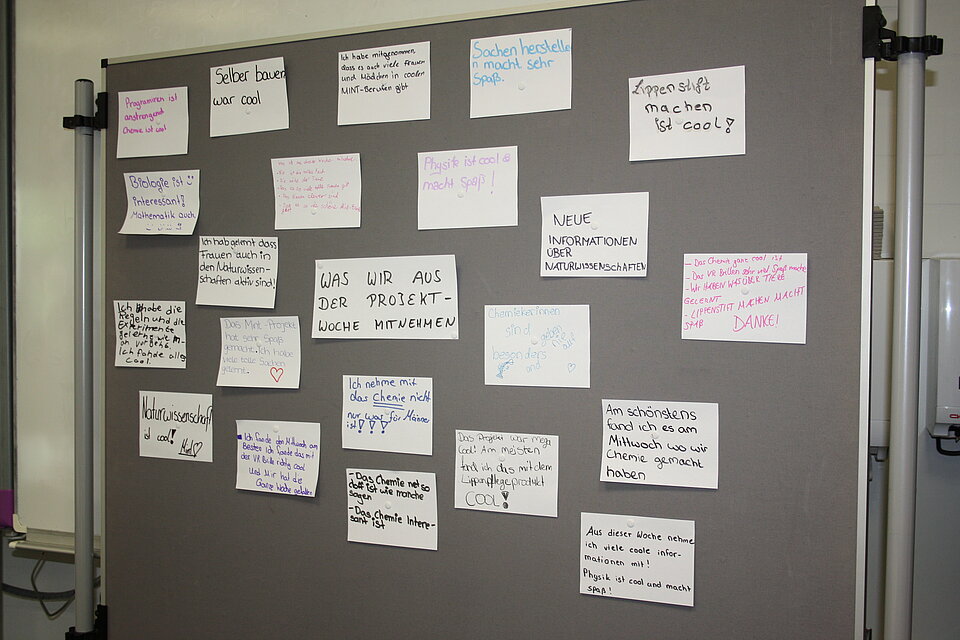 Programmieren ist
anstrengend
Chemie ist cool
Selber bauen
war cool
Ich habe mitgenommen,
dass es auch viele Frauen
und Mädchen in coolen
MINT-Berufen gibt
Sachen herstelle
n macht sehr
Spaß.
Lippenstift
machen
ist cool!
Biologie ist
interessant!
Mathematik auch
Physik ist cool
macht Spaß!
NEUE
INFORMATIONEN
ÜBER
NATURWISSENSCHAFTEN
Ich hab gelernt dass
Frauen auch in
den Naturwissen-
schaften aktiv sind!
WAS WIR AUS
DER PROJEKT-
WOCHE MITNEHMEN
- Das Chemie ganz cool ist
- Das VR Brillen sehr viel Spaß mache
- Wir HABEN WAS ÜBER TIERE
GELERNT
- LIPPENSTIFT MACHEN MACHT
SPAß DANKE!
Ich habe die
Regeln und die
Experimente
gelernt wie m-
an vorgeht.
Ich fande alles
cool.
Das Mint-Projekt
hat sehr Spaß
gemacht. Ich habe
viele tolle Sachen
gelernt.
Chemikerinnen
sind
besonders
und
Naturwissenschaft
ist cool!
Ich nehme mit
das Chemie nicht
nur was für Männer
ist!!!
Ich fande den Mittwoch am
Besten. Ich fande das mit
der VR Brille richtig cool
Und Mir hat die
Ganze Woche gefallen
Das Projekt war mega
Cool! Am meisten
fand ich das mit dem
Lippenpflegeprodukt
COOL!
Am schönstens
fand ich es am
Mittwoch wo wir
Chemie gemacht
haben
- Das Chemie net so
doff ist wie manche
sagen
- Das Chemie Intere-
sant ist
Aus dieser Woche nehme
ich viele coole infor-
mationen mit!
Physik ist cool und macht
spaß!